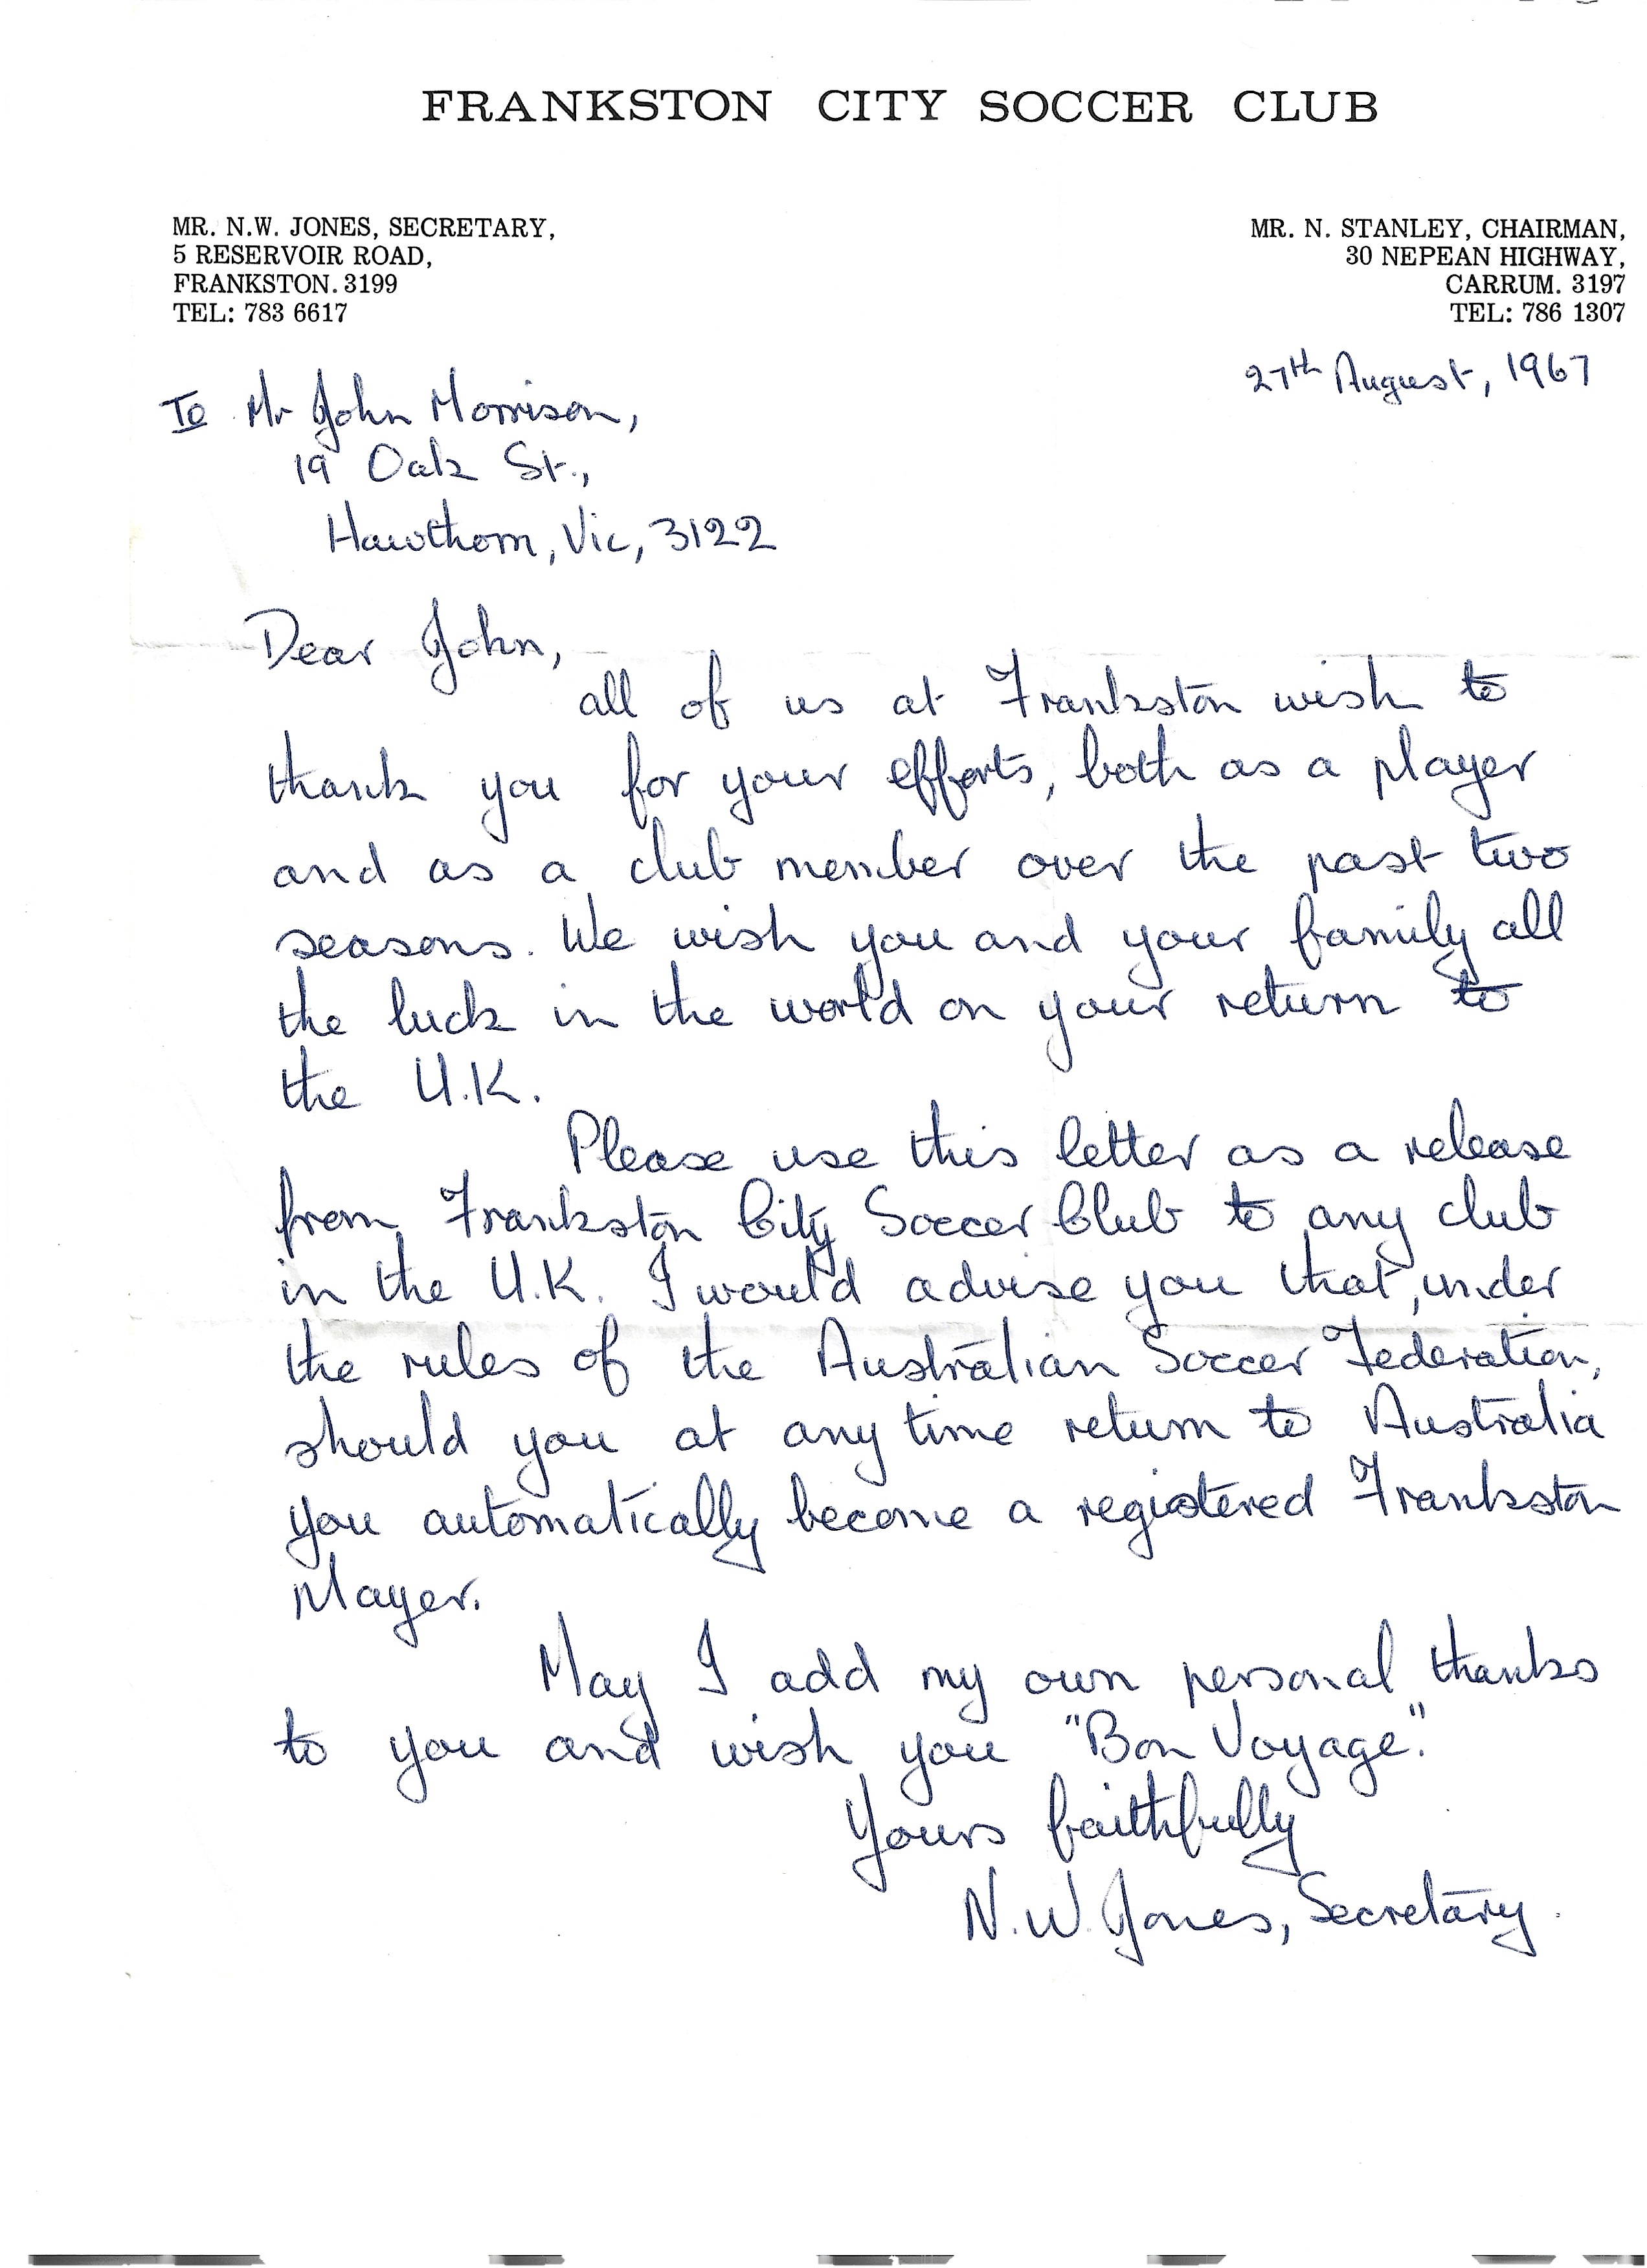 FRANKSTON CITY SOCCER CLUB
MR. N.W. JONES, SECRETARY,
5 RESERVOIR ROAD,
FRANKSTON. 3199
TEL: 783 6617
MR. N. STANLEY, CHAIRMAN,
30 NEPEAN HIGHWAY,
CARRUM. 3197
TEL: 786 1307
27th August, 1967
To Mr John Morrison,
19 Oak St.,
Hawthorn, Vic, 3122
Dear John,
all of us at Frankston wish to
thank you for your efforts, both as a player
and as a club member over the past two
seasons. We wish you and your family all
the luck in the world on your return to
the U.K.
Please use this letter as a release
from Frankston City Soccer Club to any club
in the U.K. I would advise you that, under
the rules of the Australian Soccer Federation,
should you at any time return to Australia
you automatically become a registered Frankston
Player.
May I add my own personal thanks
to you and wish you "Bon Voyage."
Yours faithfully
N.W. Jones, Secretary.